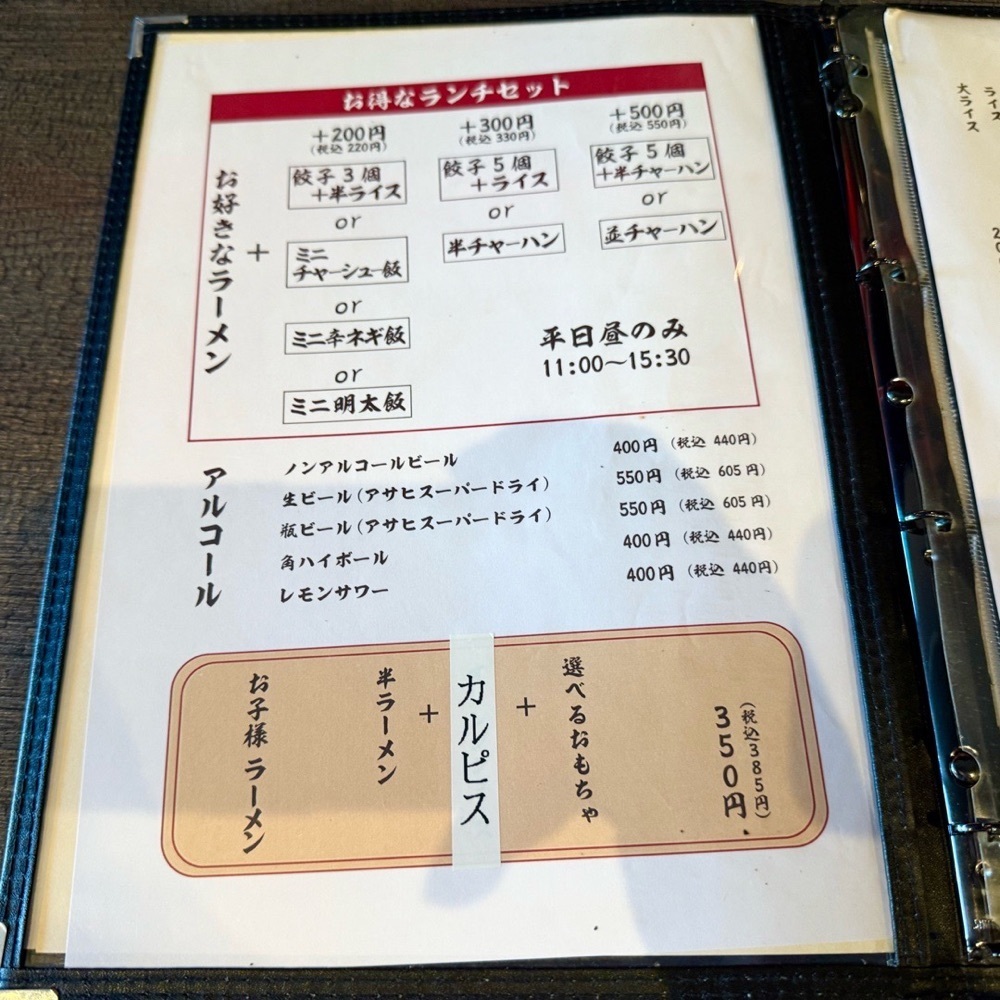 お得なランチセット
お好きなラーメン
+
+200円
(税込 220円)
餃子3個
+半ライス
or
ミニ
チャーシュー飯
or
ミニ辛ネギ飯
or
ミニ明太飯
+300円
(税込 330円)
餃子5個
+ライス
or
半チャーハン
+500円
(税込 550円)
餃子5個
+半チャーハン
or
並チャーハン
平日昼のみ
11:00～15:30
アルコール
ノンアルコールビール 400円 (税込 440円)
生ビール(アサヒスーパードライ) 550円 (税込 605円)
瓶ビール(アサヒスーパードライ) 550円 (税込 605円)
角ハイボール 400円 (税込 440円)
レモンサワー 400円 (税込 440円)
お子様ラーメン
半ラーメン
+
カルピス
+
選べるおもちゃ
350円
(税込385円)
ライス
大ライス